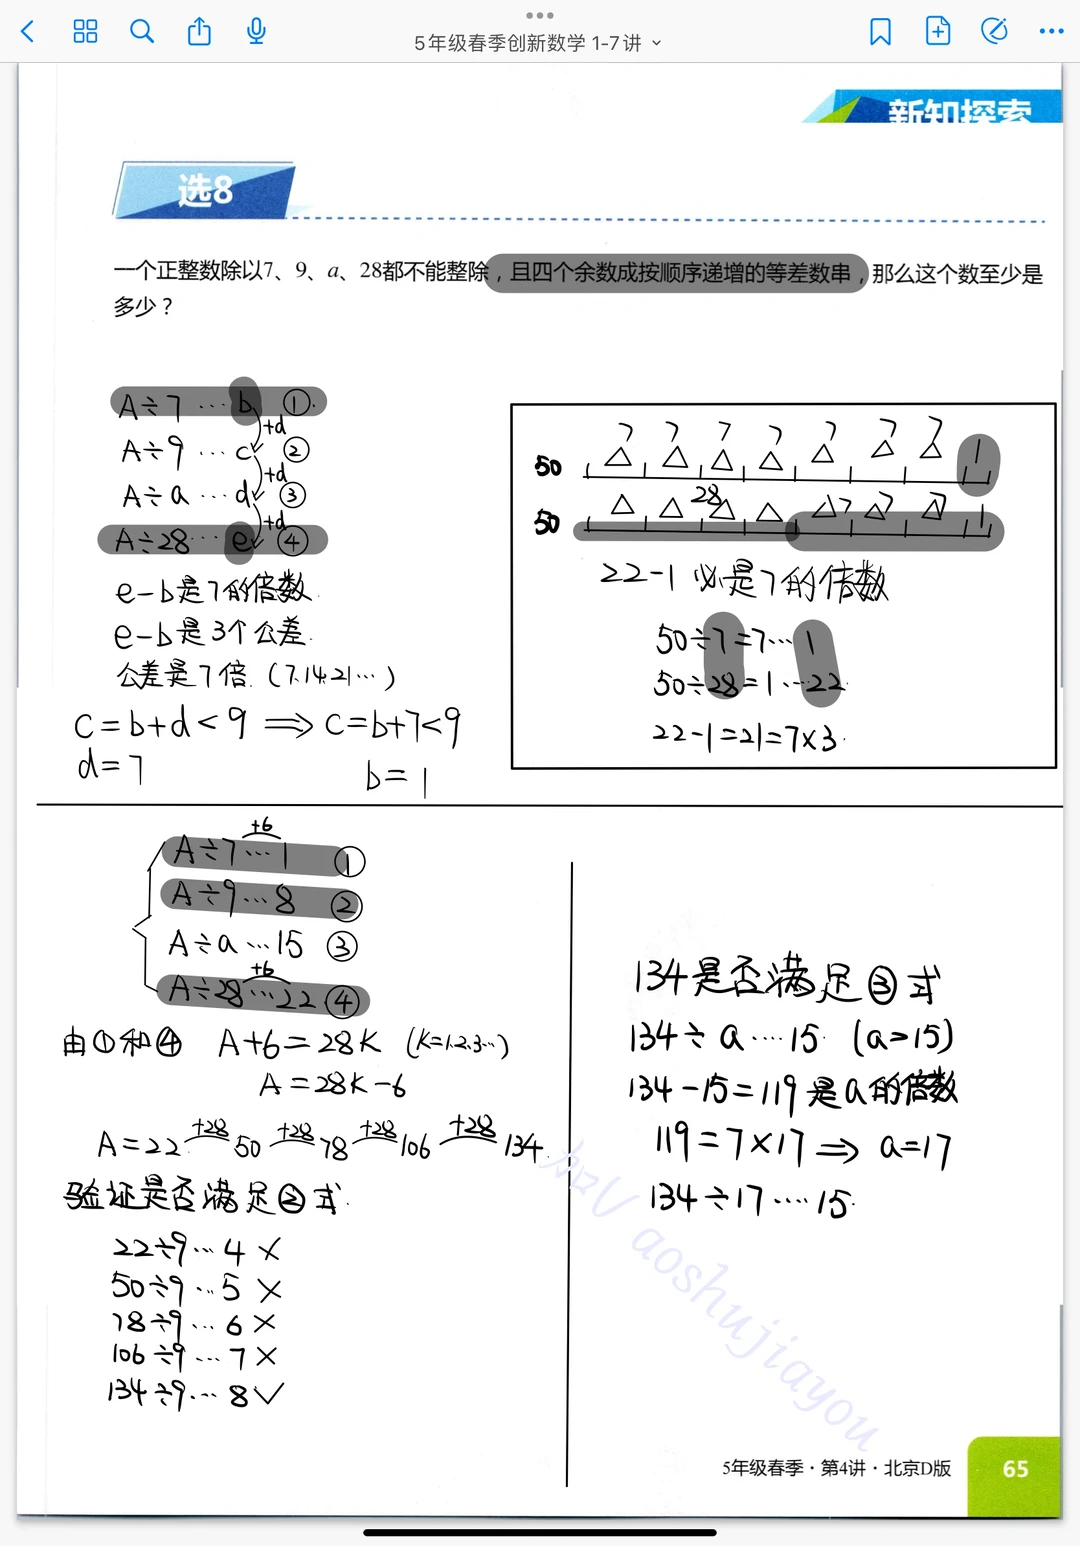 5年级春季创新数学 1-7讲
新知探索
选8
一个正整数除以7、9、a、28都不能整除，且四个余数成按顺序递增的等差数串，那么这个数至少是
多少？
A÷7 … b ①
+d
A÷9 … c ②
+d
A÷a … d ③
+d
A÷28 … e ④
e-b是7的倍数
e-b是3个公差.
公差是7倍.（7.14.21…）
c=b+d<9 ⟹ c=b+7<9
d=7 b=1
7 7 7 7 7 7 7 1
50
28 7 7 7 1
50
22-1 必是7的倍数
50÷7=7…1
50÷28=1…22
22-1=21=7×3.
+6
A÷7…1 ①
A÷9…8 ②
A÷a…15 ③
+6
A÷28…22 ④
由①和④ A+6=28K (K=1.2.3…)
A=28K-6
+28 +28 +28 +28
A=22 50 78 106 134.
验证是否满足②式.
22÷9…4 ×
50÷9…5 ×
78÷9…6 ×
106÷9…7 ×
134÷9…8 ✓
134是否满足③式
134÷a…15 (a>15)
134-15=119是a的倍数
119=7×17 ⟹ a=17
134÷17…15.
aoshujiayou
5年级春季·第4讲·北京D版
65